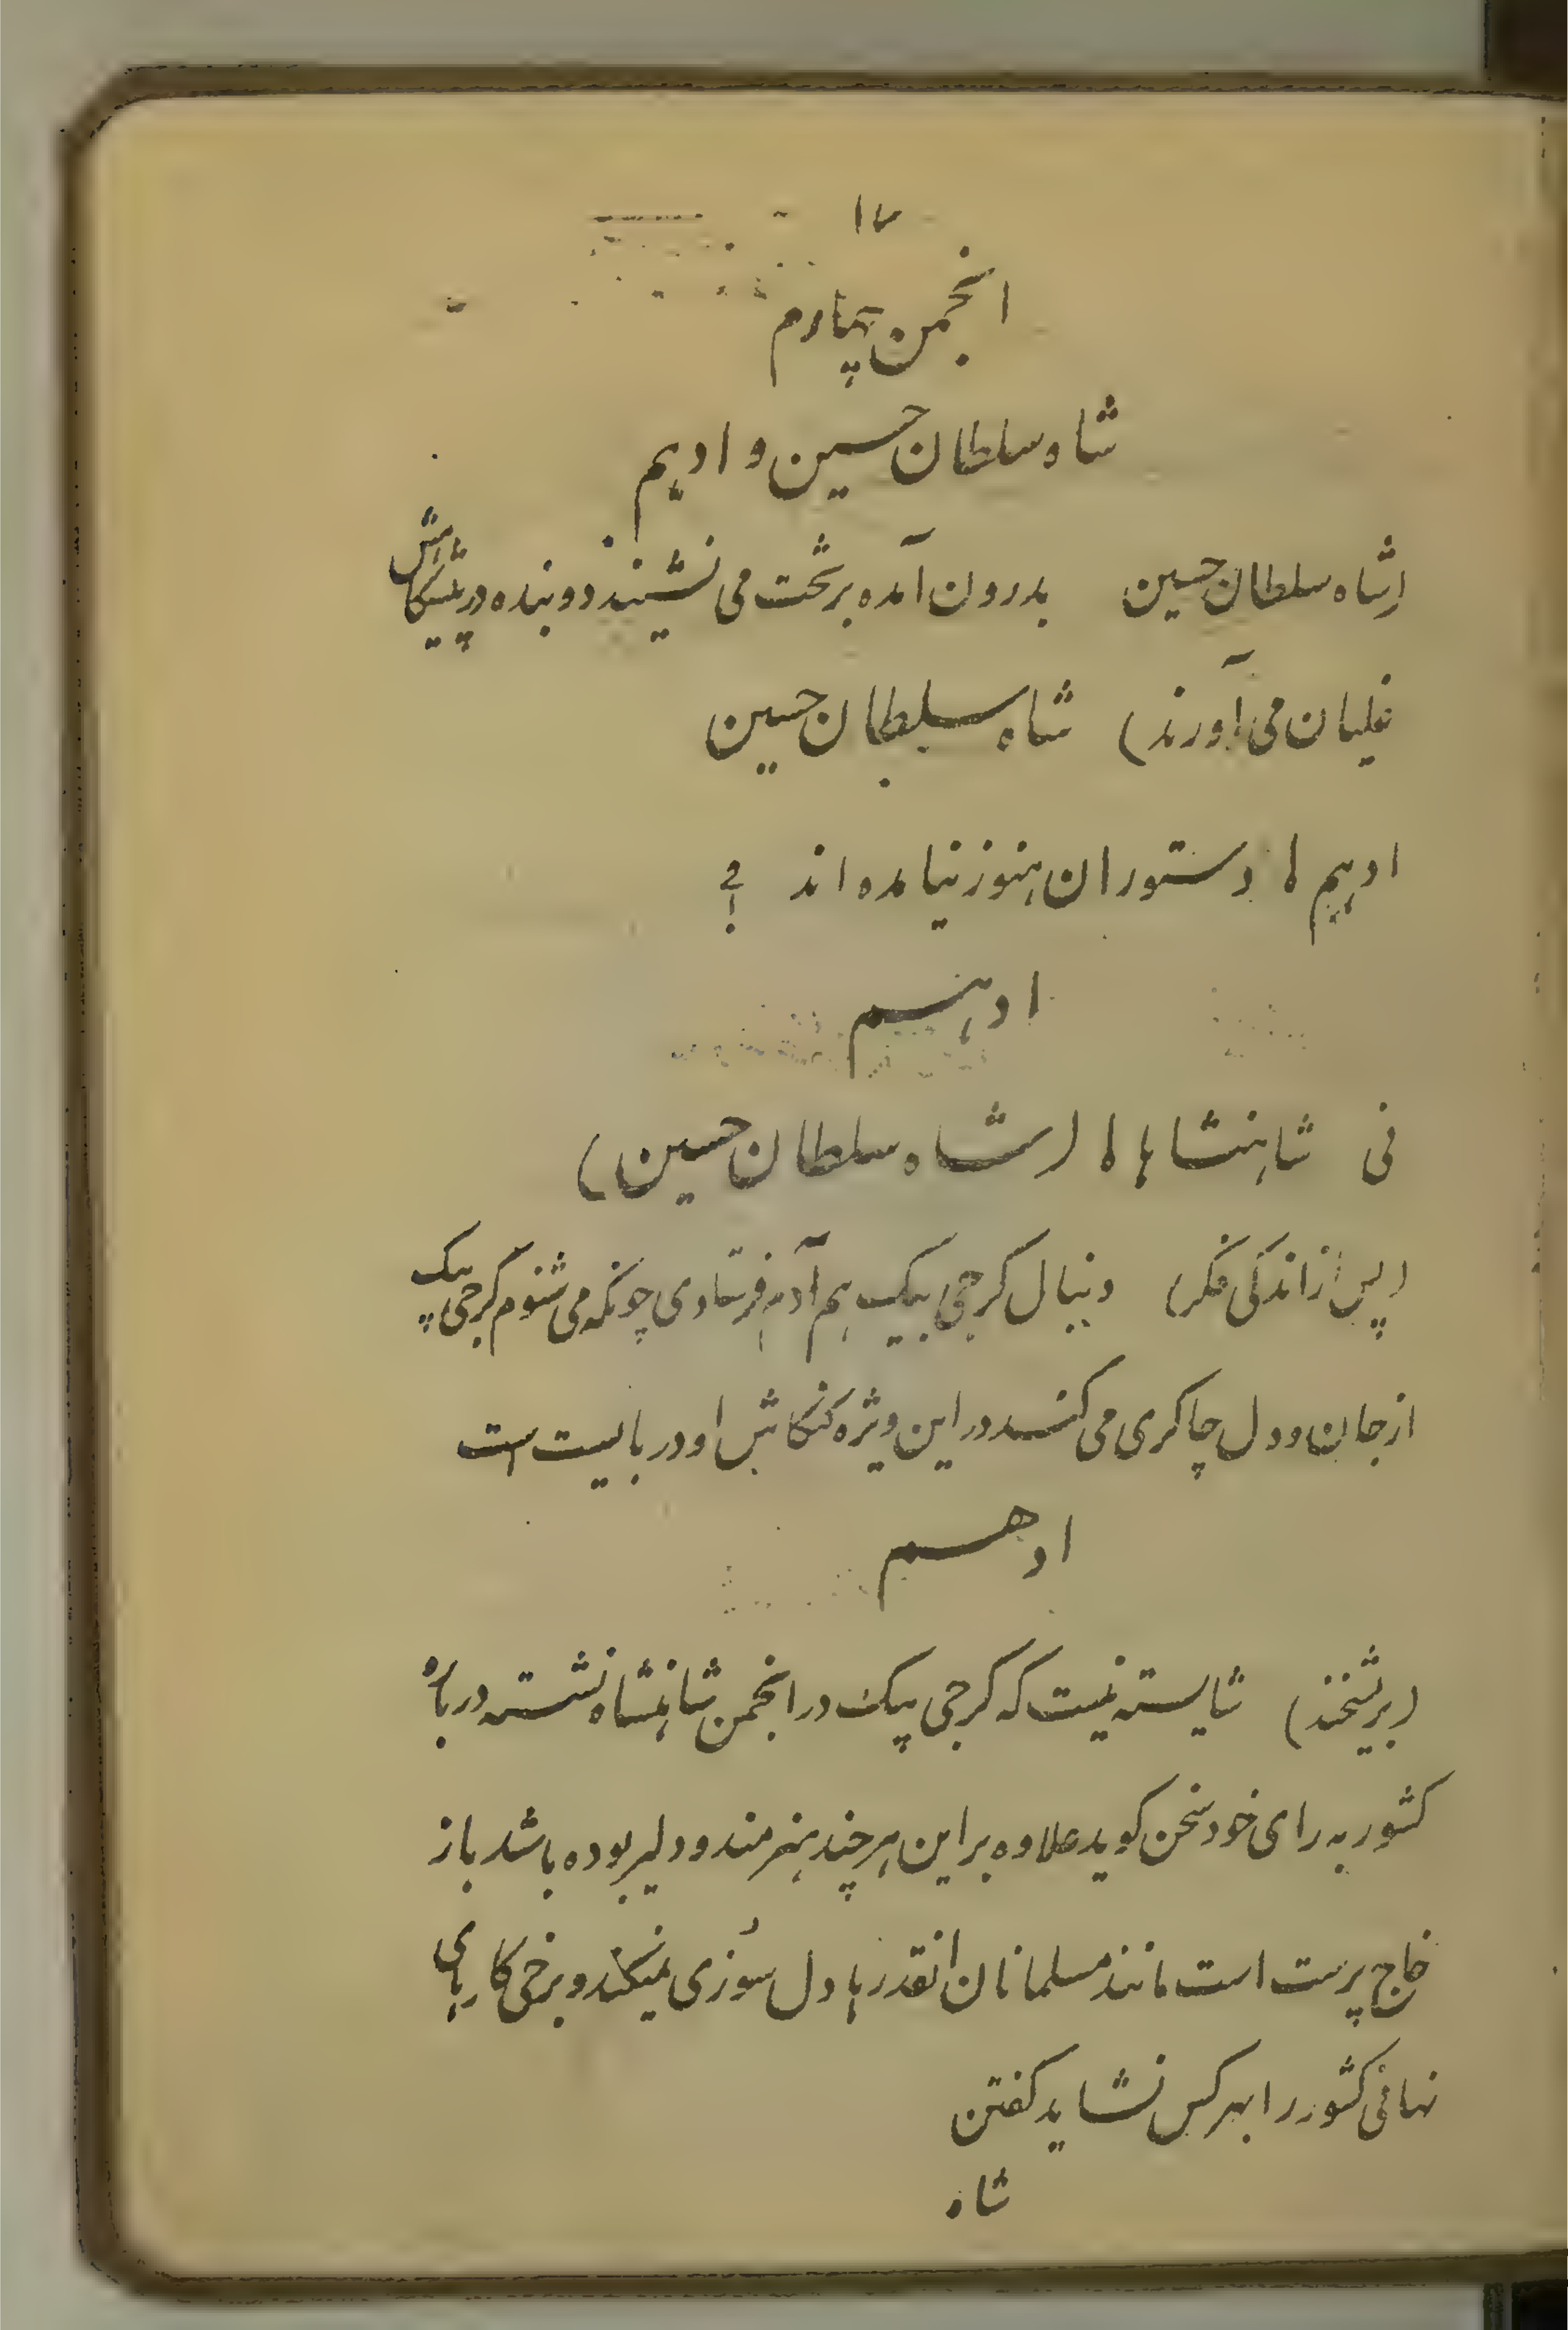 ۱۷
انجمن چهارم
شاه سلطان حسین و ادهم
(شاه سلطان حسین بدرون آمده بر تخت می نشیند دو بنده در پیشگاهش
غلیان می آورند) شاه سلطان حسین
ادهم ! دستوران هنوز نیامده اند ؟!
ادهم
نی شاهنشاها ! (شاه سلطان حسین)
(پس از اندکی فکر) دنبال کرجی بیک هم آدم فرستادی چونکه می شنوم کرجی بیک
از جان و دل چاکری می کند در این ویژه کنکاش او در بایست است
ادهم
(بریشخند) شایسته نیست که کرجی بیک در انجمن شاهنشاه نشسته درباره
کشور به رای خود سخن کوید علاوه بر این هر چند هنرمند و دلیر بوده باشد باز
خاج پرست است مانند مسلمانان انقدرها دل سُوزی نمیکند و برخی کارهای
نهانی کشور را بهر کس نشاید کفتن
شاه